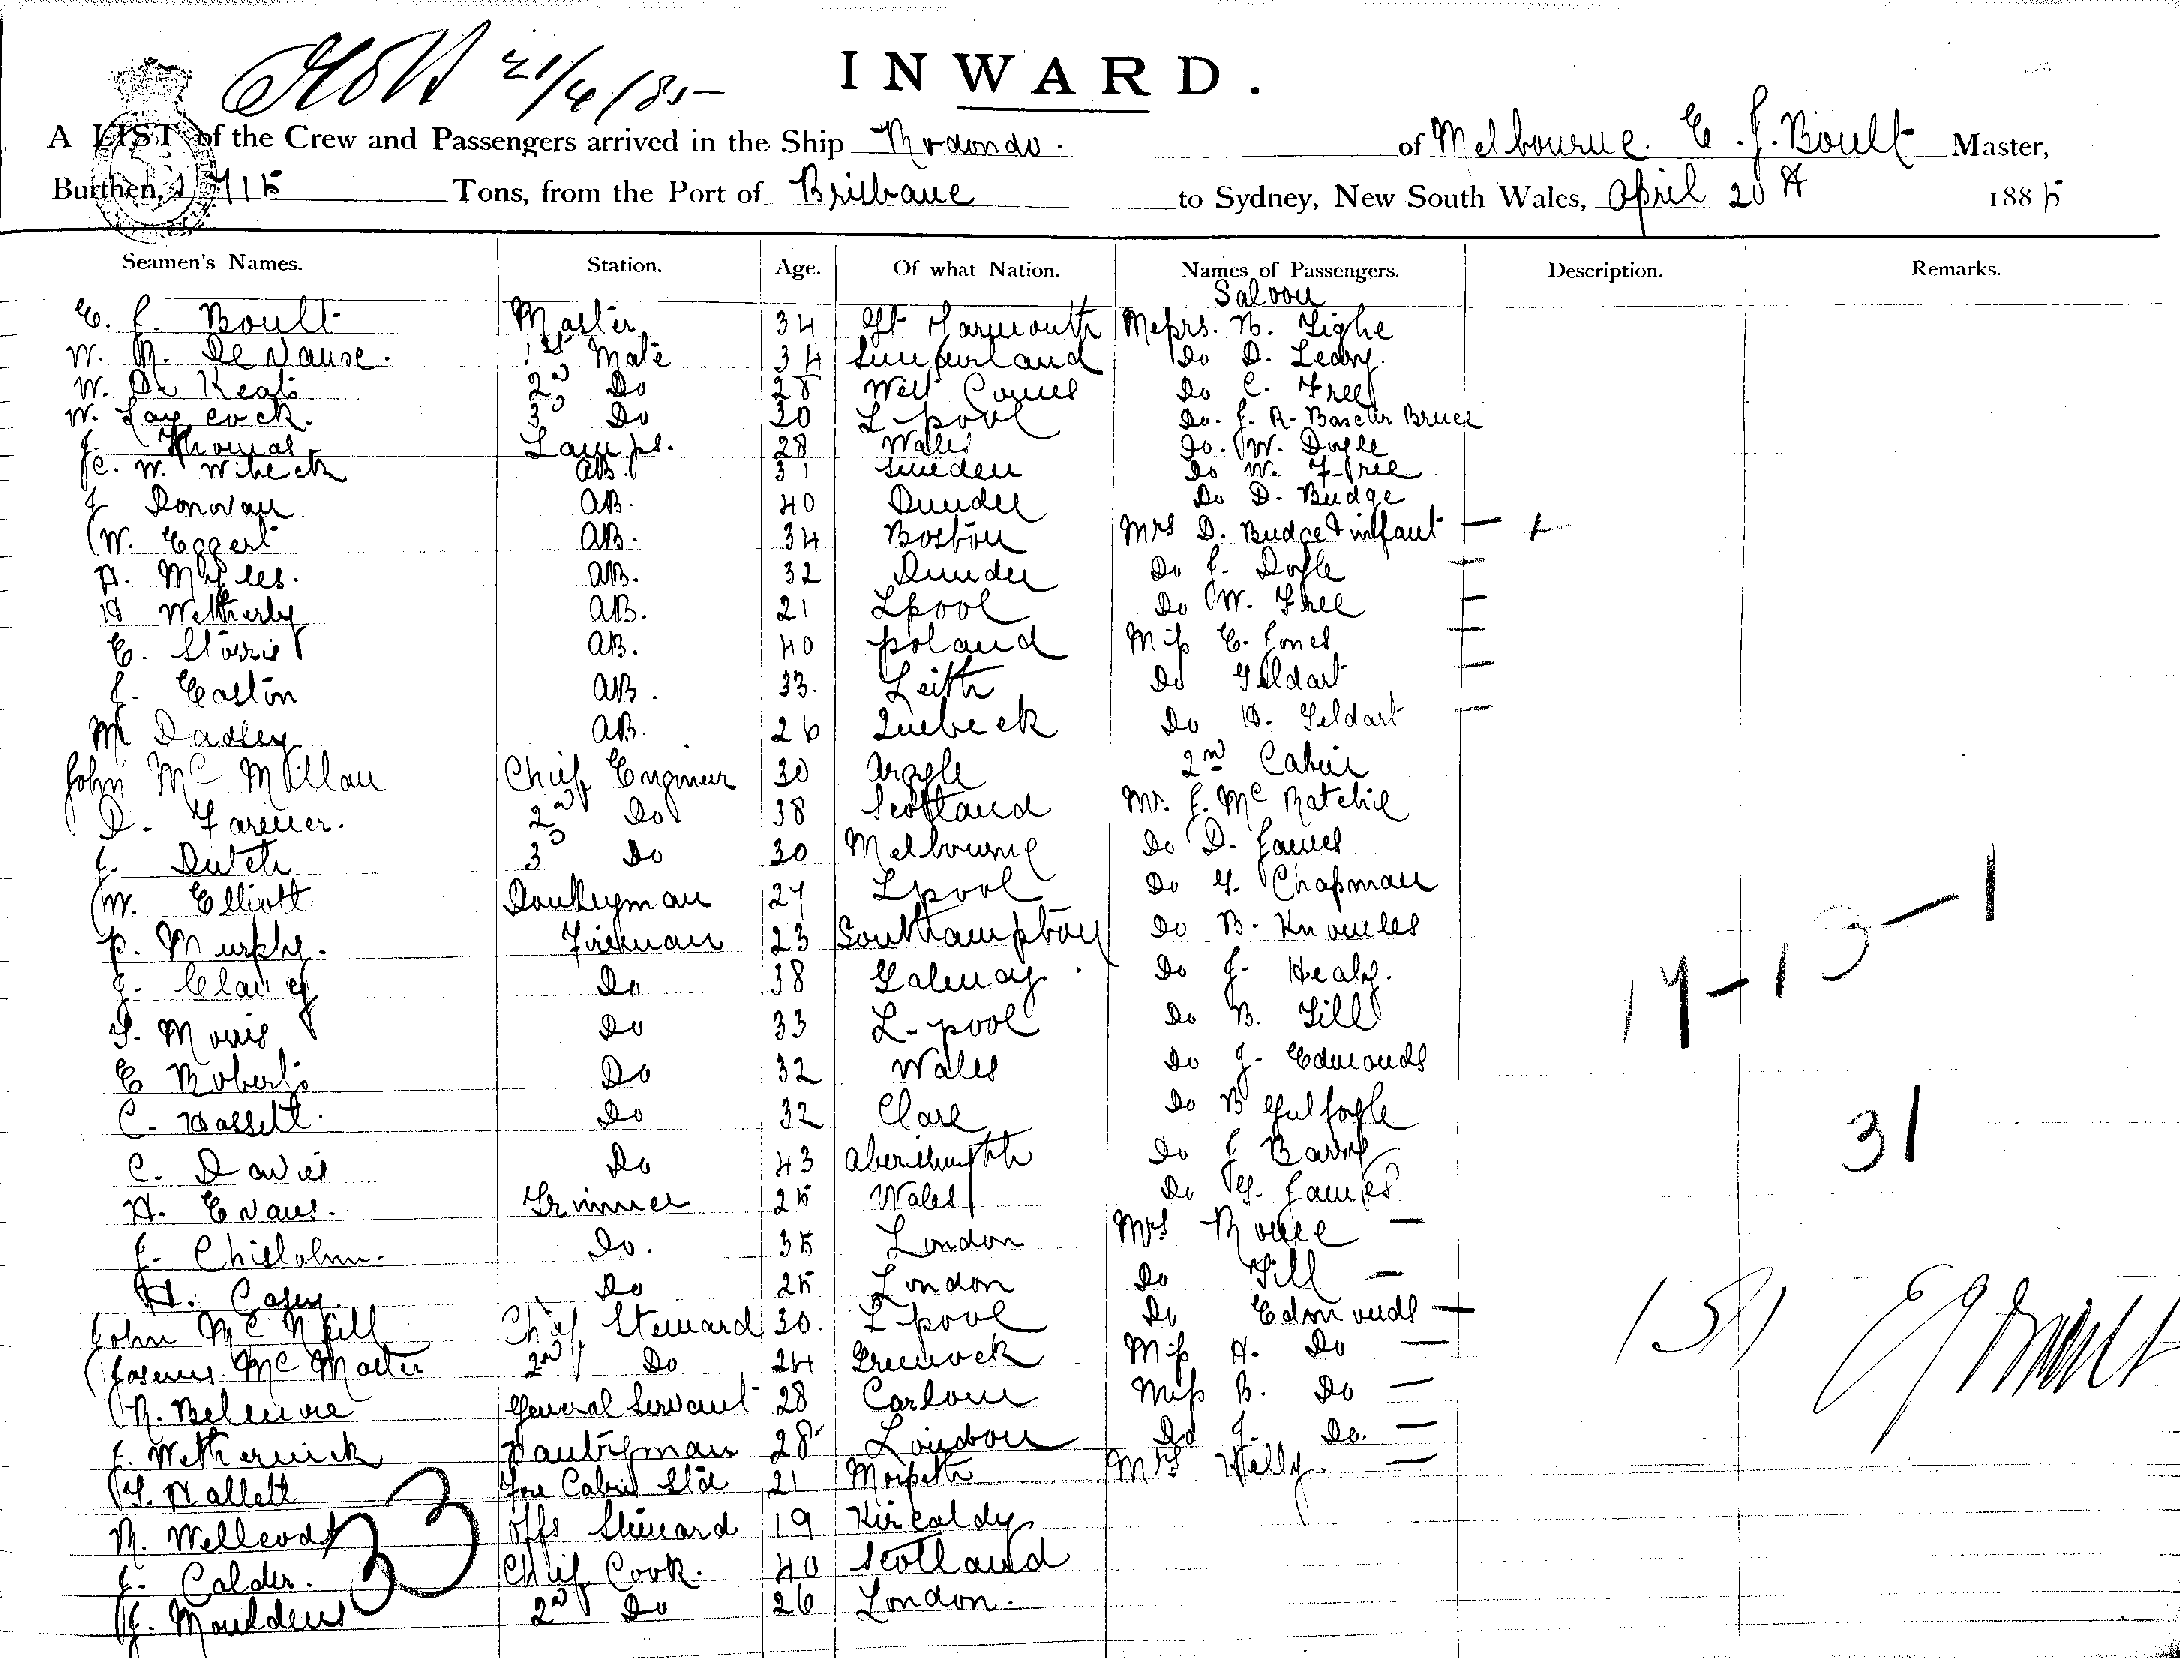 21/4/85
INWARD.
A LIST of the Crew and Passengers arrived in the Ship Rodondo. of Melbourne. E. J. Boult Master,
Burthen, 1115 Tons, from the Port of Brisbane to Sydney, New South Wales, April 20th 1885
Seamen's Names. Station. Age. Of what Nation. Names of Passengers. Description. Remarks.
Saloon
E. J. Boult Master 34 Gt Yarmouth Messrs. N. Tighe
W. 1st Mate 34 Sunderland Do D. Leary.
W. 2nd Do 28 West Cowes Do C. Free
W. Laycock. 3d Do 30 L-pool Do. J. R. Bruce
J. Thomas Lamps. 28 Wales Do. W. Doyle
C. W. Wibeck AB. 31 Sweden Do W. Free
J Donovan AB. 40 Dundee Do D. Budge
W. Eggert AB. 34 Boston Mrs D. Budge & infant —
H. Myles. AB. 32 Dundee Do J. Doyle —
H Wetherby AB. 21 Lpool Do W. Free —
E. AB. 40 Poland Miss E. Jones —
J. Easton AB. 33. Leith Do Geldart —
M Dadley AB. 26 Quebeck Do H. Geldart —
John McMillan Chief Engineer 30 Argyle 2nd Cabin
D. Farmer. 2nd Do 38 Scotland Mr. J. Mc Ratchie
J. Dutch 3d Do 30 Melbourne Do D. James
W. Elliott Donkeyman 27 Lpool Do G. Chapman
P. Murphy. Fireman 23 Southampton Do B. Knowles
J. Clancy Do 38 Galway Do J. Healy.
17-13-1
S. Morris Do 33 L-pool Do B. Gill
E Roberts Do 32 Wales Do J. Edmonds
C. Hassett. Do 32 Clare Do B Guilfoyle
31
C. Davies Do 43 Aberistwyth Do J Barry
H. Evans. Trimmer 25 Wales Do G. James
J. Chisholm. Do. 35 London Mrs Rowe —
H. Casey. Do 25 London Do Gill —
John McNeill Chief Steward 30. L pool Do Edmonds —
151 E J Boult
James McMaster 2nd Do 24 Greenock Miss A. Do —
R. Belmore General Servant 28 Carlow Miss B. Do —
J. Wetherwick Pantryman 28 London Do J. Do. —
G. Hallett Fore Cabin Std 21 Morpeth Mrs Welly. —
R. Wellwood Offs Steward 19 Kircaldy
33
J. Calder. Chief Cook. 40 Scotland
J. Mouldens 2nd Do 26 London.